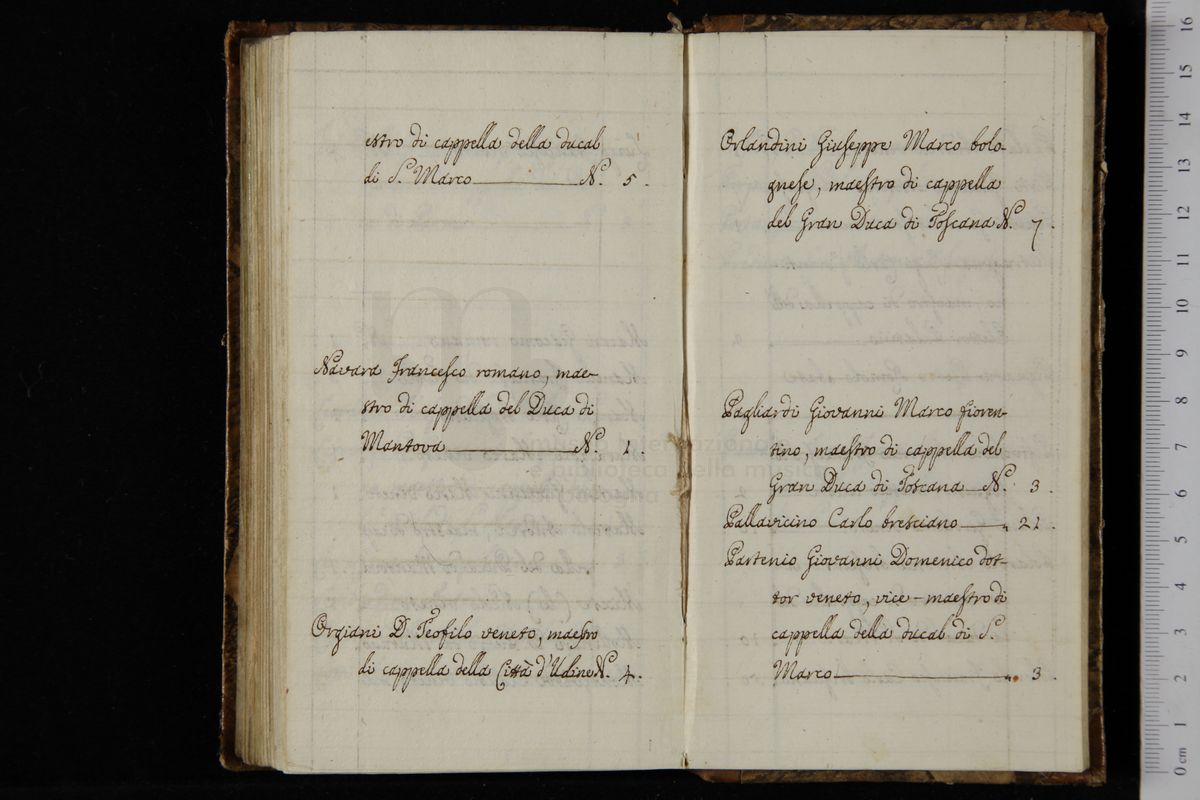 estro di cappella della ducal
di S. Marco N.° 5.
Navara Francesco romano, mae-
stro di cappella del Duca di
Mantova N.° 1.
Orgiani D. Teofilo veneto, maestro
di cappella della Città d'Udine N.° 4.
Orlandini Giuseppe Marco bolo-
gnese, maestro di cappella
del Gran Duca di Toscana N.° 7.
Pagliardi Giovanni Marco fioren-
tino, maestro di cappella del
Gran Duca di Toscana N.° 3.
Pallavicino Carlo bresciano „ 21.
Partenio Giovanni Domenico dot-
tor veneto, vice-maestro di
cappella della ducal di S.
Marco „ 3.
museo internazionale
e biblioteca della musica